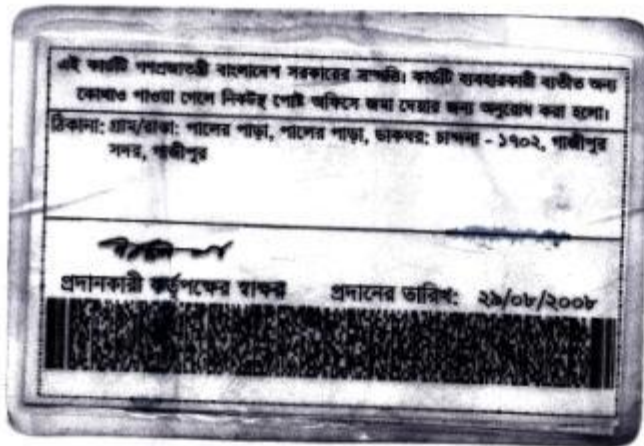 এই কার্ডটি গণপ্রজাতন্ত্রী বাংলাদেশ সরকারের সম্পত্তি। কার্ডটি ব্যবহারকারী ব্যতীত অন্য
কোথাও পাওয়া গেলে নিকটস্থ পোষ্ট অফিসে জমা দেয়ার জন্য অনুরোধ করা হলো।
ঠিকানা: গ্রাম/রাস্তা: পালের পাড়া, পালের পাড়া, ডাকঘর: চান্দনা - ১৭০২, গাজীপুর
সদর, গাজীপুর
প্রদানকারী কর্তৃপক্ষের স্বাক্ষর প্রদানের তারিখ: ২৯/০৮/২০০৮